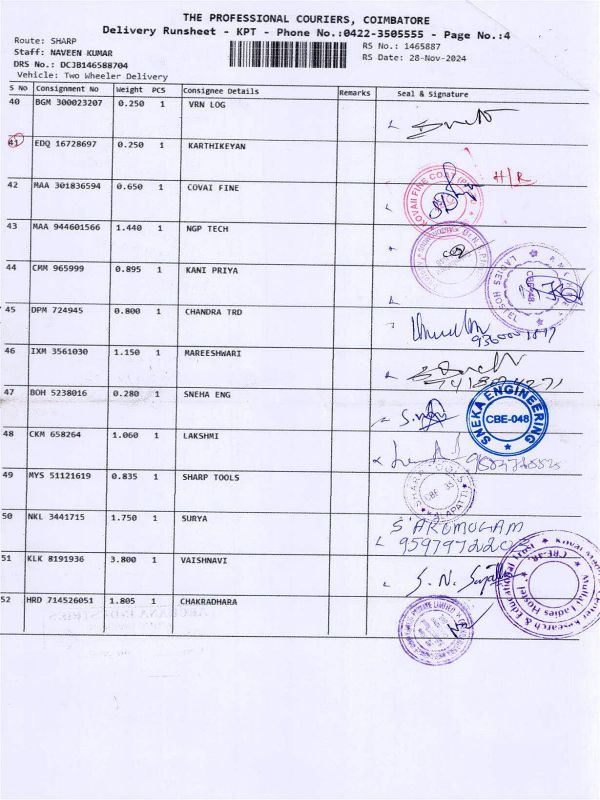 THE PROFESSIONAL COURIERS, COIMBATORE
Delivery Runsheet - KPT - Phone No.:0422-3505555 - Page No.:4
Route: SHARP
RS No.: 1465887
Staff: NAVEEN KUMAR
RS Date: 28-Nov-2024
DRS No.: DCJB146588704
Vehicle: Two Wheeler Delivery
S No Consignment No Weight PCS Consignee Details Remarks Seal & Signature
40 BGM 300023207 0.250 1 VRN LOG
41 EDQ 16728697 0.250 1 KARTHIKEYAN H/R
42 MAA 301836594 0.650 1 COVAI FINE
43 MAA 944601566 1.440 1 NGP TECH
44 CMM 965999 0.895 1 KANI PRIYA
LADIES HOSTEL
45 DPM 724945 0.800 1 CHANDRA TRD
46 IXM 3561030 1.150 1 MAREESHWARI
47 BOH 5238016 0.280 1 SNEHA ENG
SNEKA ENGINEERING
CBE-048
48 CKM 658264 1.060 1 LAKSHMI
49 MYS 51121619 0.835 1 SHARP TOOLS
50 NKL 3441715 1.750 1 SURYA S ARUMUGAM
51 KLK 8191936 3.800 1 VAISHNAVI
Research & Educational Trust
Mullai Ladies Hostel
52 HRD 714526051 1.805 1 CHAKRADHARA